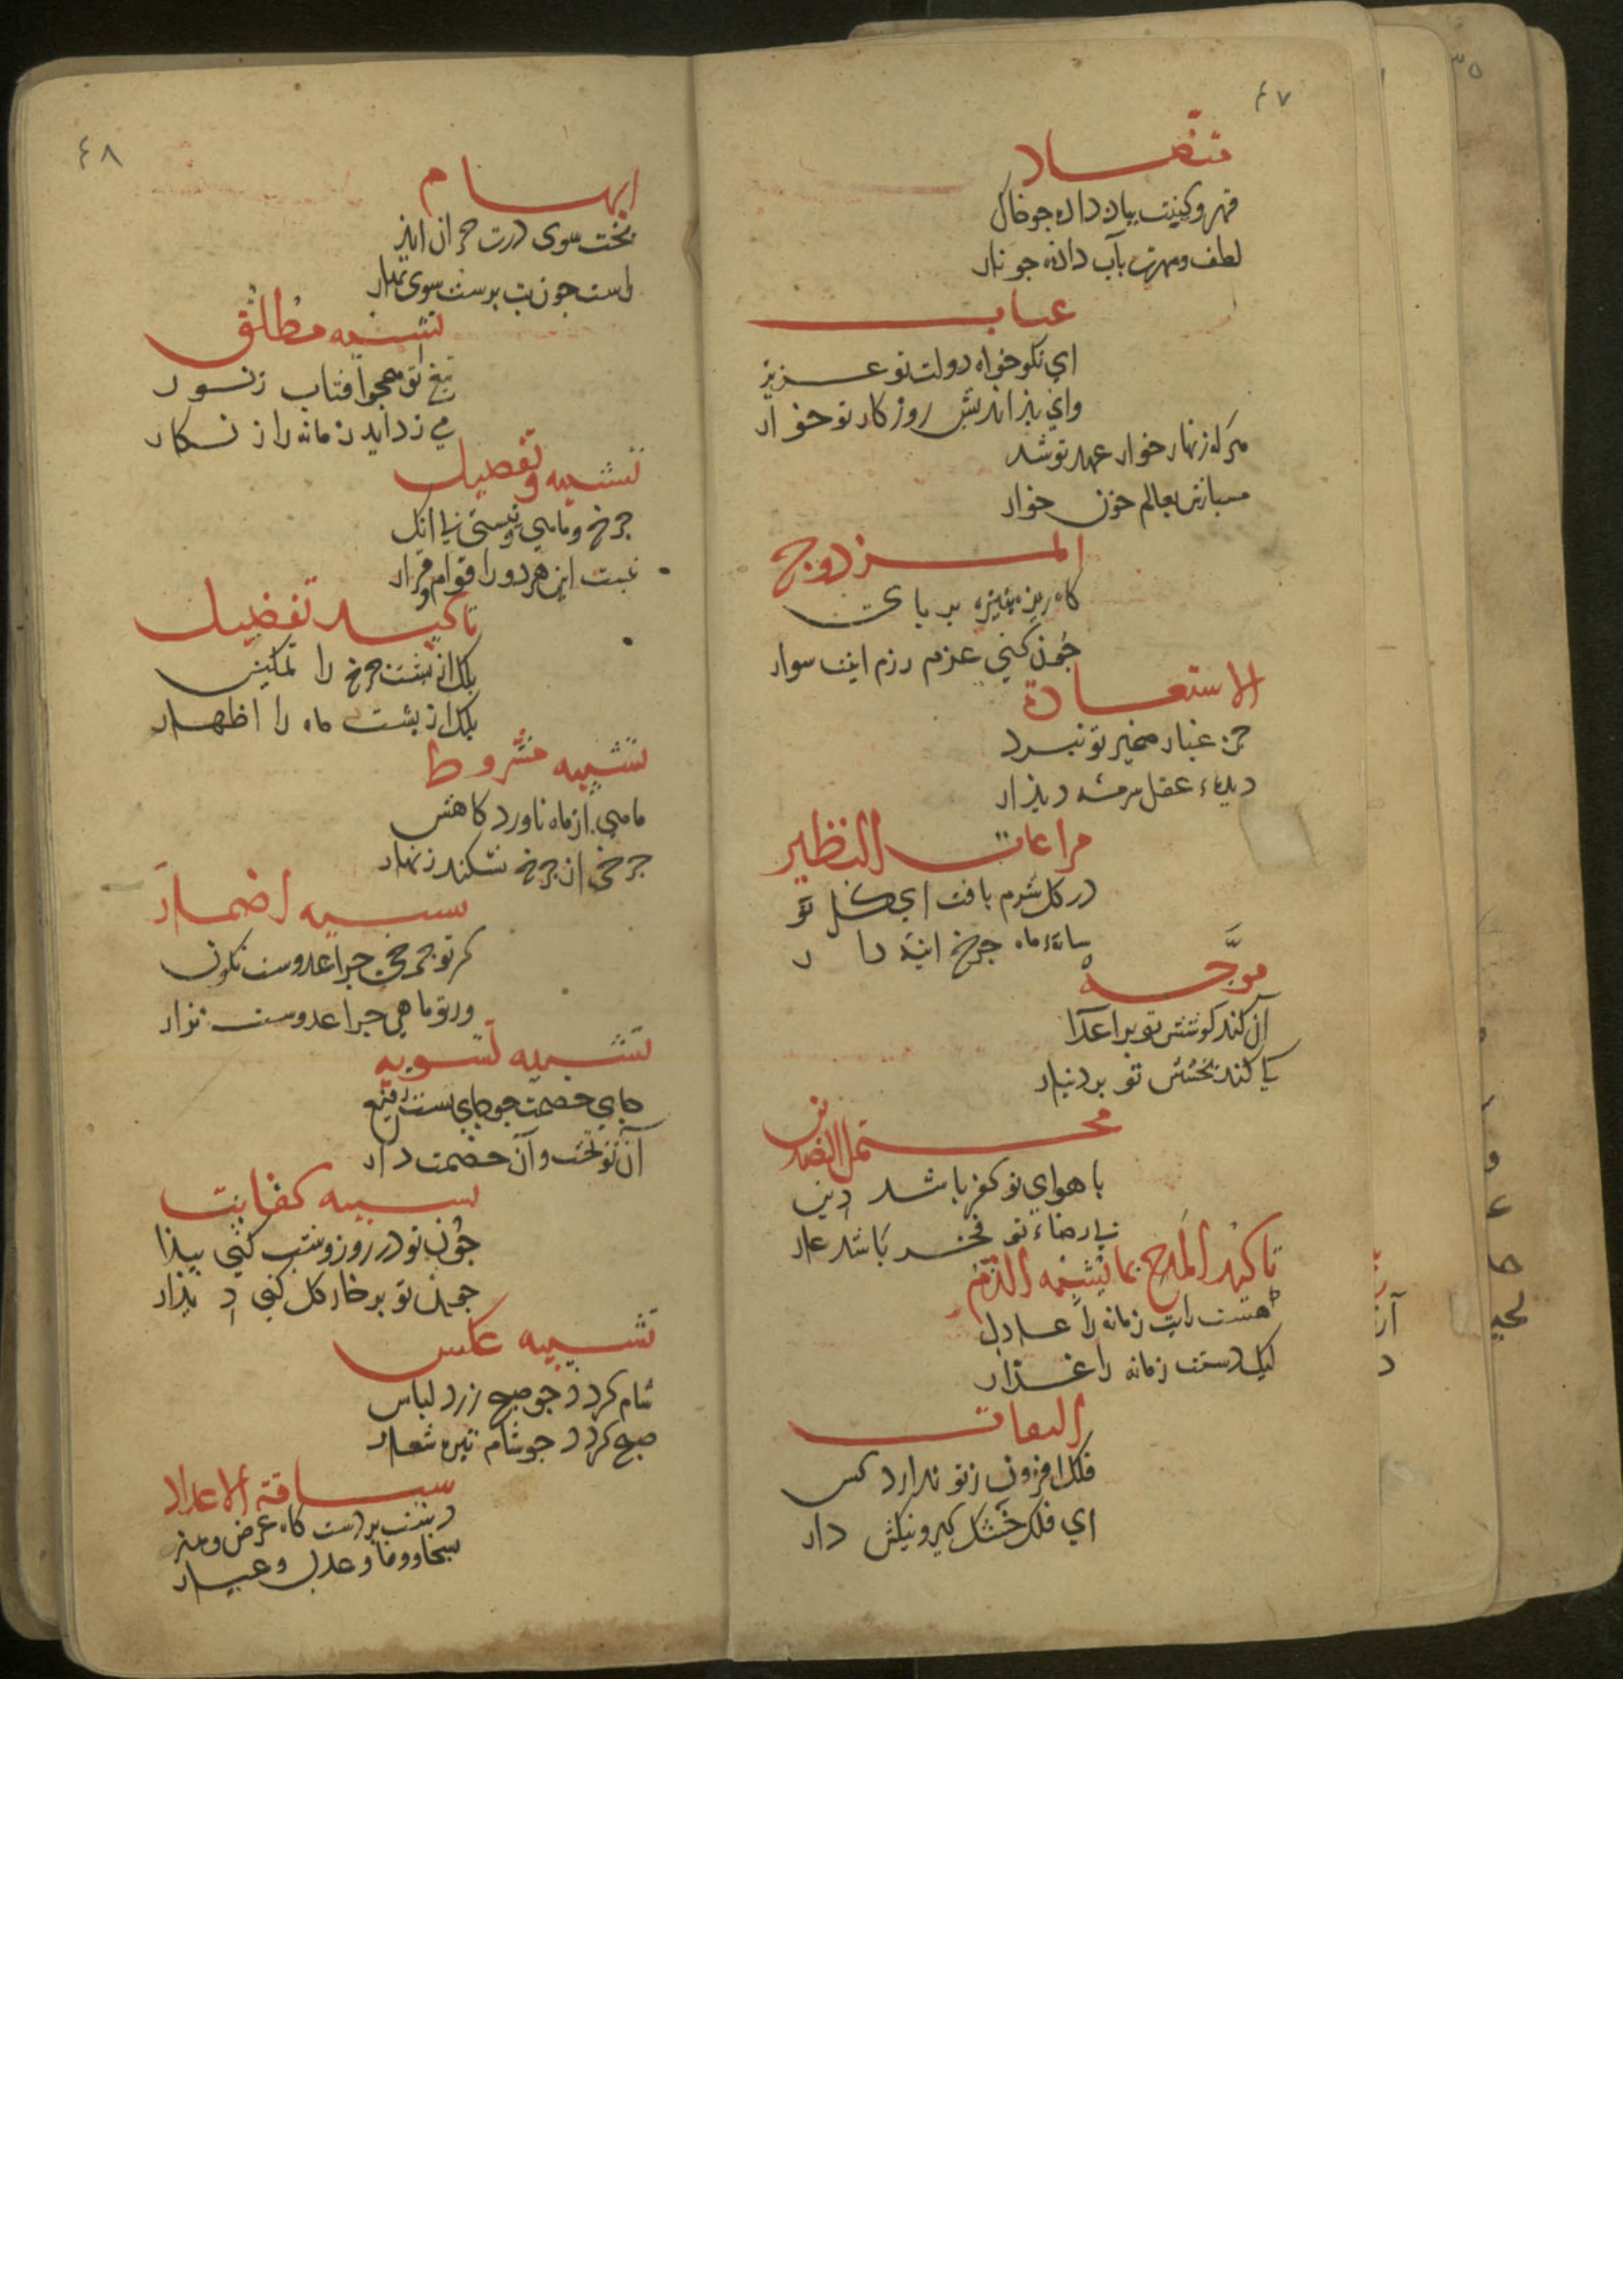 ٤٧
متضاد
قهر وکینت بباد داده جو خاک
لطف ومهرت بآب داده جو نار
ای نکو خواه دولت تو عزیز
وای بذ اندیش روزکار تو خوار
هرکه زنهار خوار عهد تو شد
بعالم خون خوار
المزدوج
کاه ریزه بنیزه بربای
جون کنی عزم رزم اینت سوار
الاستعارة
جز غبار نبرد تو نبرد
دیده عقل سرمه دیذار
مراعات النظیر
در کل شرم یافت ای کل تو
ماه جرخ اینه دار
موجه
آن کند کوشش تو بر اعدا
کی کند بخشش تو بر دنیار
محتمل الضدین
با هوای تو کفر باشد دین
بی رضاء تو فخر باشد عار
تاکید المدح بما یشبه الذم
هست رایت زمانه را عادل
لیک دستت زمانه را غدار
التفات
فلک افزون ز تو ندارد کس
ای فلک خشک کیر ونیکش دار
٤٨
ایهام
بخت سوی درت خزان ایذ
راست جون بت برست سوی بهار
تشبیه مطلق
تیغ تو همجو افتاب ز نور
می زداید زمانه را زنکار
تشبیه وتفصیل
جرخ وماهی ونیستی زیرا نک
نیست این هردو را قوام وقرار
تاکید تفضیل
بلک از تست جرخ را تمکین
بلک از تست ماه را اظهار
تشبیه مشروط
ماهی ار ماه ناورد کاهش
جرخی ار جرخ نشکند زنهار
تشبیه اضمار
کر تو جرخی جرا عدوست نکون
ور تو ماهی جرا عدوست نزار
تشبیه تسویه
جای خصمت جو جای تست رفیع
آن تو تخت وآن خصمت دار
تشبیه کنایت
جون تو در روز وشب کنی بیذا
جون تو بر خار کل کنی دیذار
تشبیه عکس
شام کردد جو صبح زرد لباس
صبح کردد جو شام تیره شعار
سیاقة الاعداد
دستت بردست کاه عرض وهنر
سخا ووفا وعدل وعیار